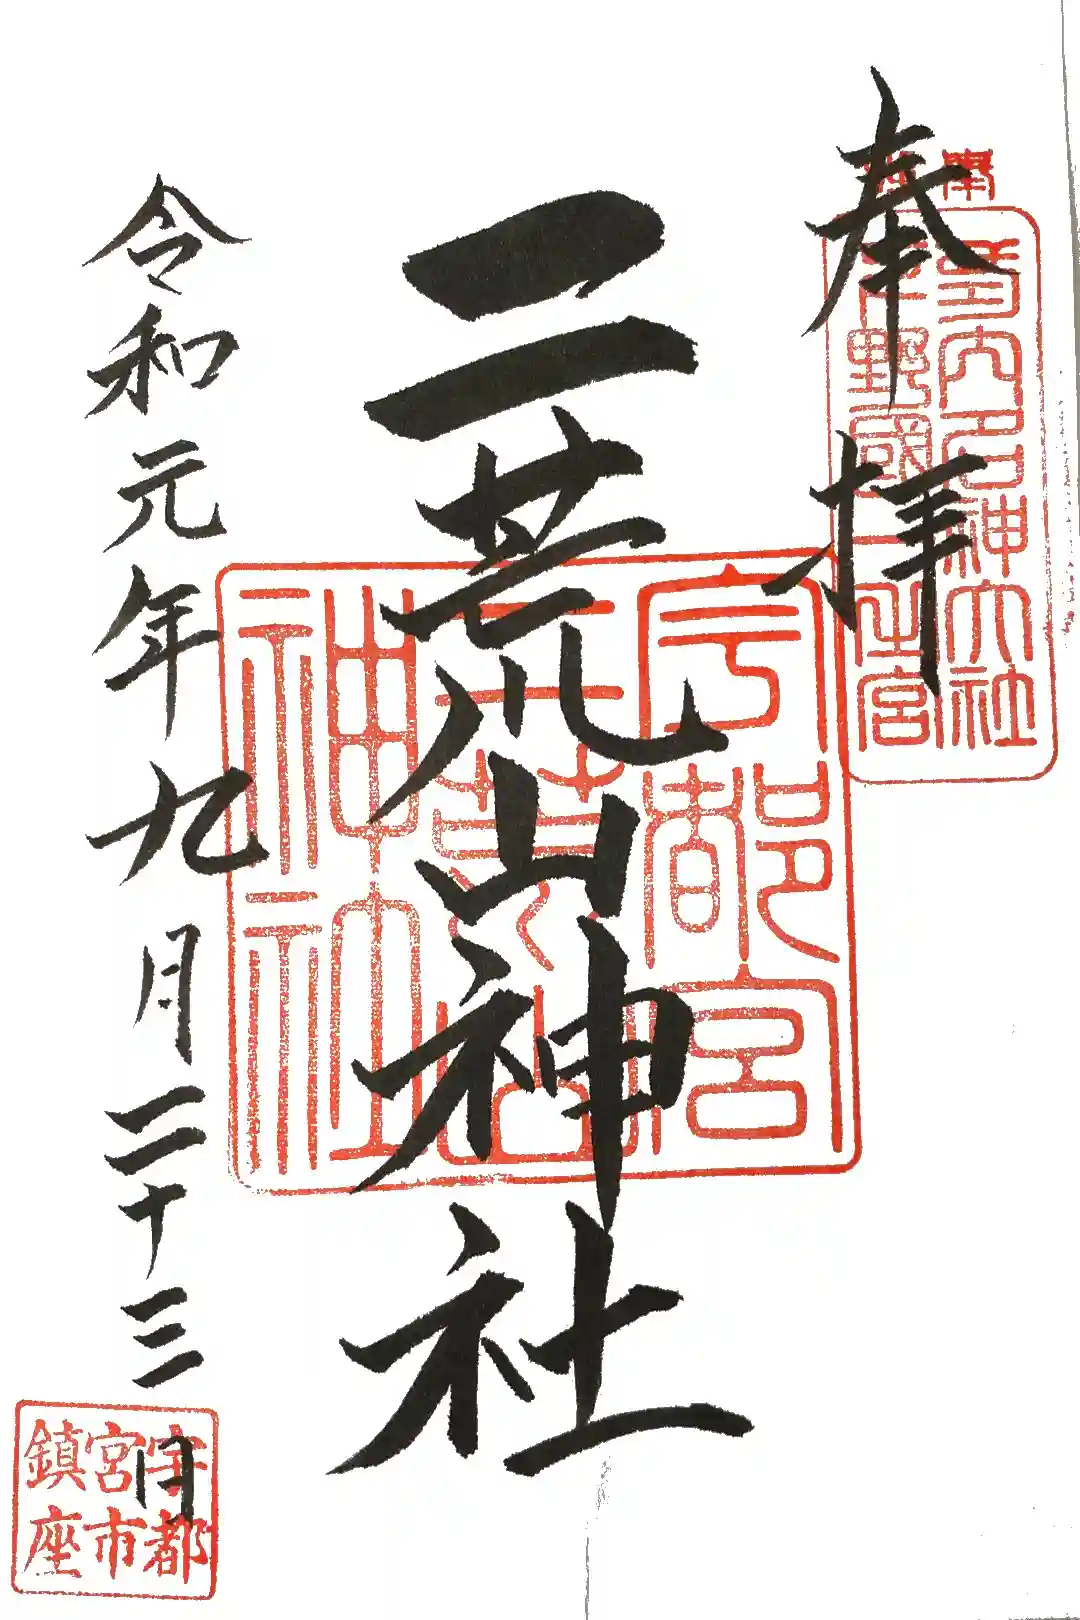 奉拝
延喜式内名神大社
下野國一之宮
二荒山神社
宇都宮
二荒山
神社
令和元年九月二十三日
宇都
宮市
鎮座